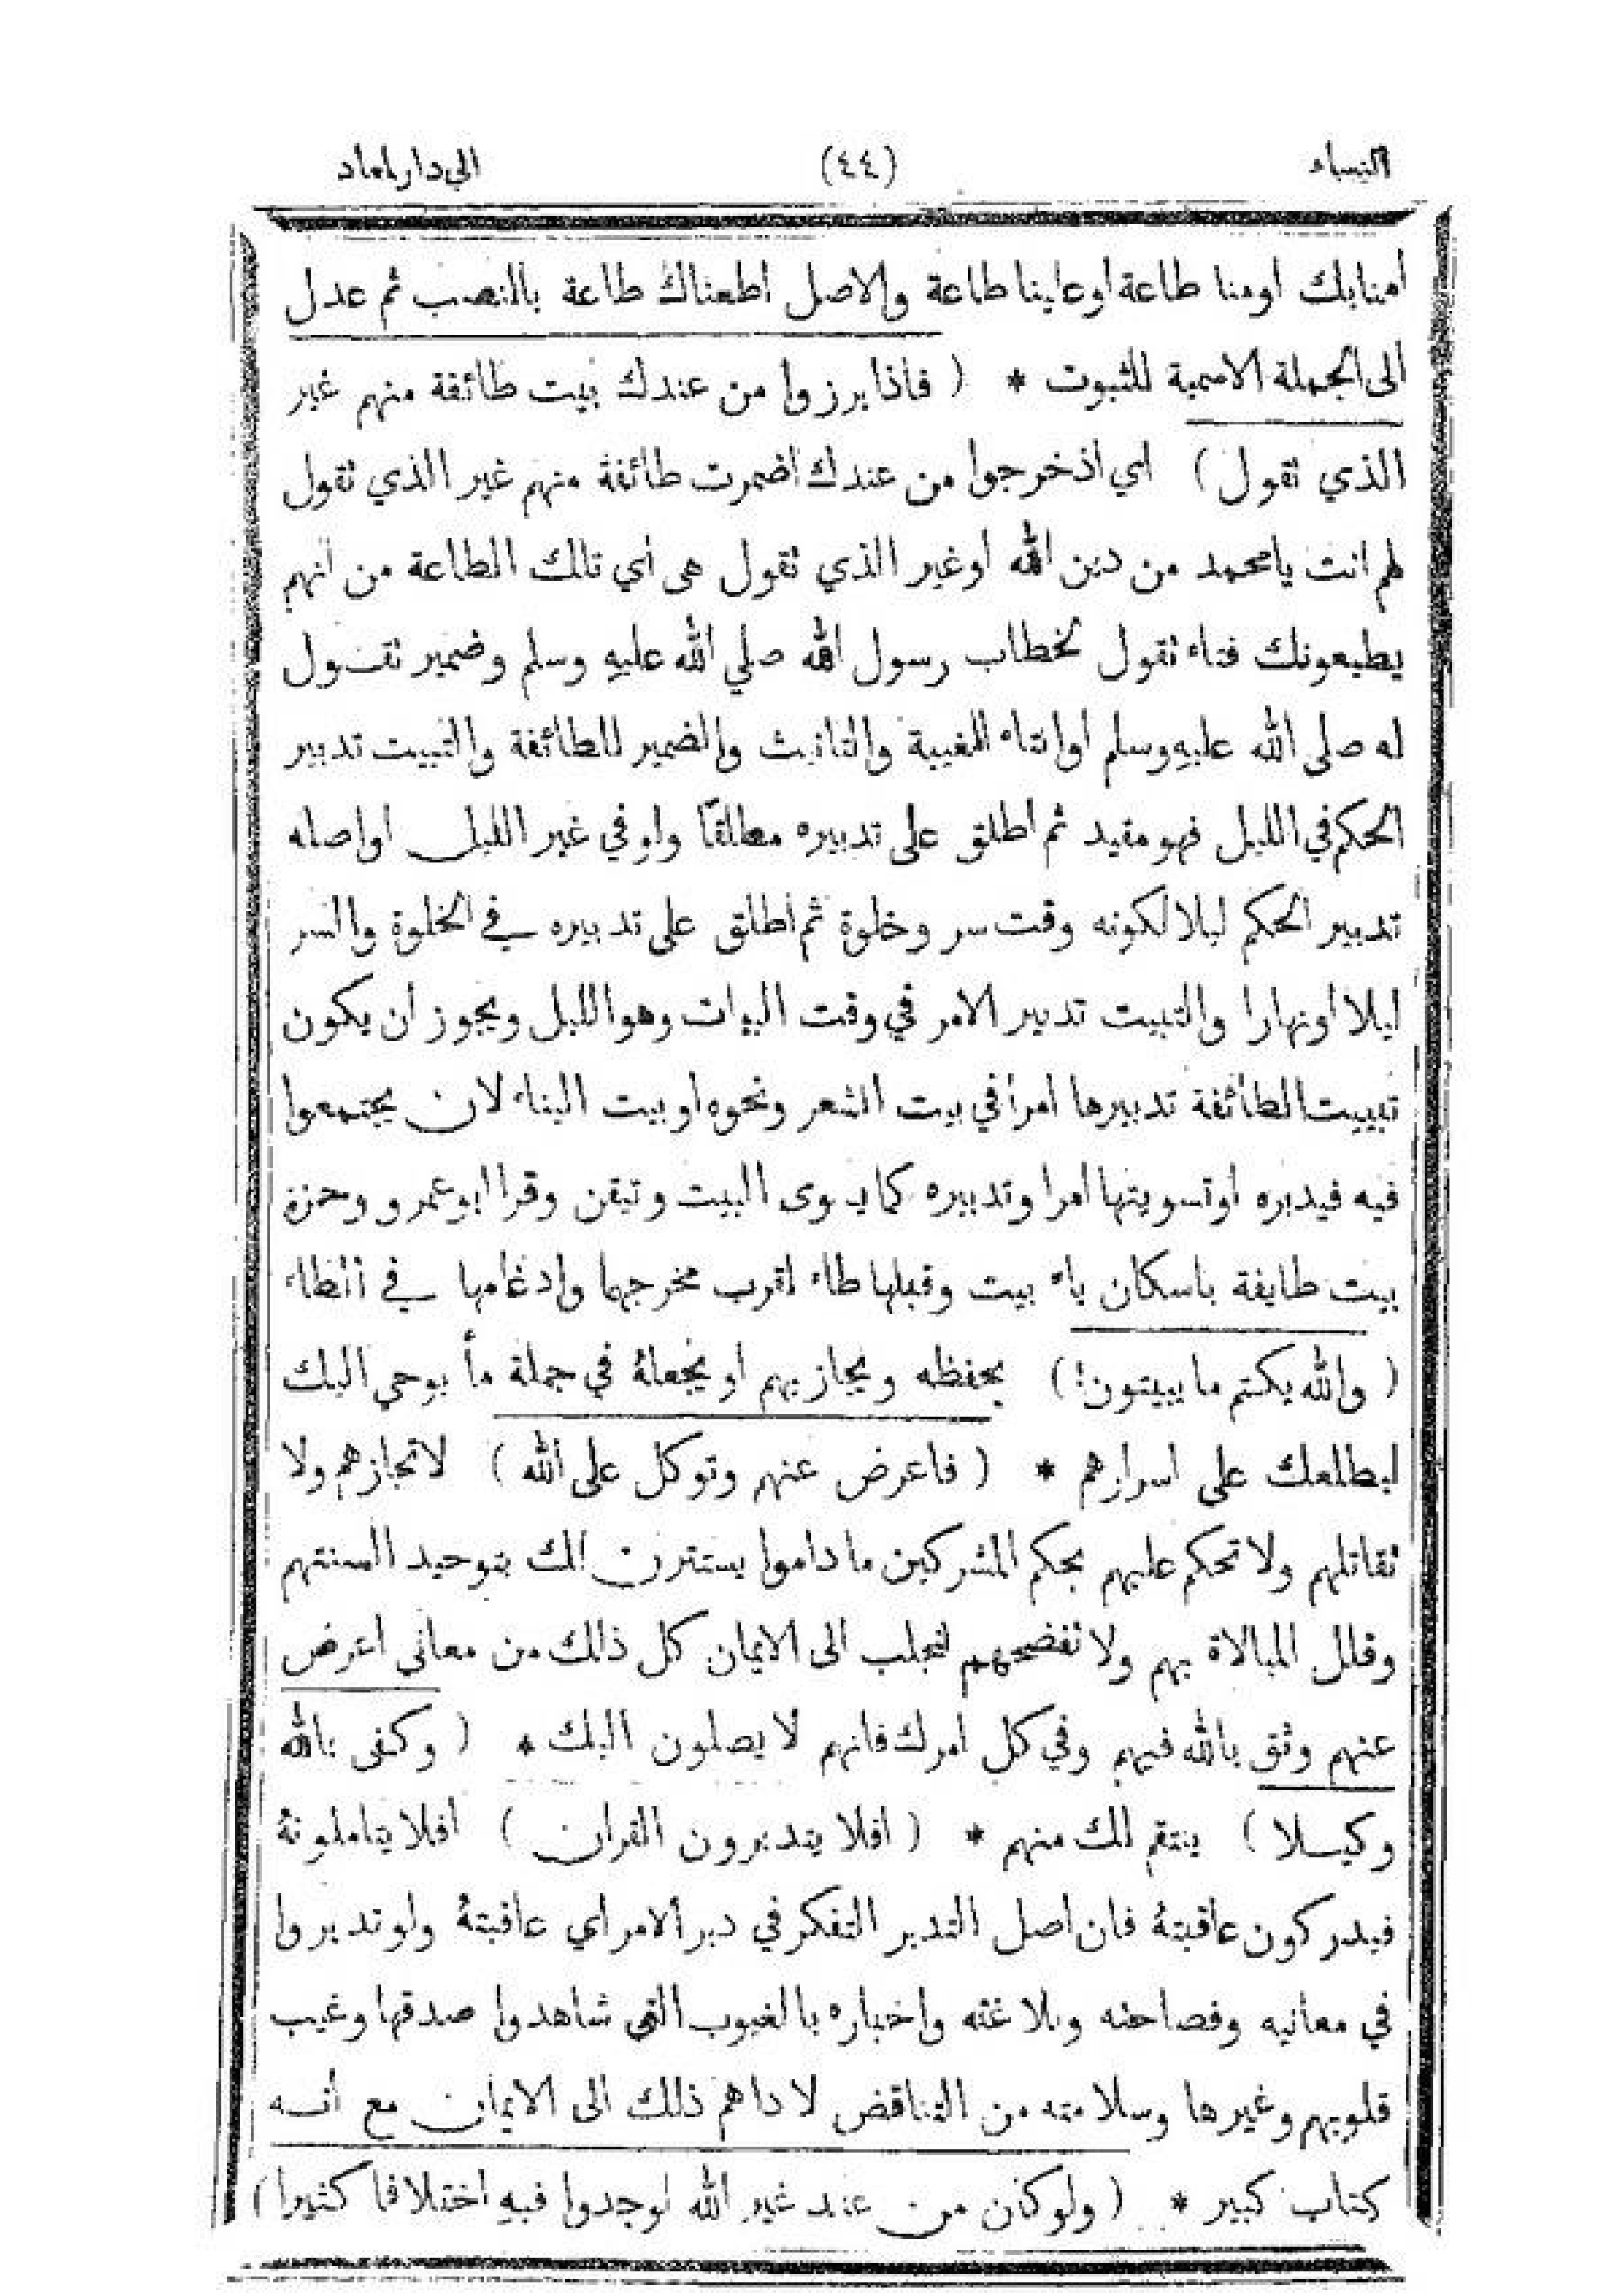 النساء (٤٤) الى دار المعاد
امنا بك او منا طاعة او علينا طاعة والاصل اطعناك طاعة بالنصب ثم عدل
الى الجملة الاسمية للثبوت * ( فاذا برزوا من عندك بيت طائفة منهم غير
الذي تقول ) اي اذ خرجوا من عندك اضمرت طائفة منهم غير الذي تقول
لهم انت يا محمد من دين الله او غير الذي تقول هى أي تلك الطاعة من انهم
يطيعونك فتاء تقول لخطاب رسول الله صلي الله عليهِ وسلم وضمير تقول
له صلى الله عليهِ وسلم او التاء للغيبة والتانيث والضمير للطائفة والتبيت تدبير
الحكم في الليل فهو مقيد ثم اطلق على تدبيره مطلقًا ولو في غير الليل او اصله
تدبير الحكم ليلا لكونه وقت سر وخلوة ثم اطلق على تدبيره في الخلوة والسر
ليلا او نهارا والتبيت تدبير الامر في وقت البيات وهو الليل ويجوز أن يكون
تبييت الطائفة تدبيرها امرا في بيت الشعر ونحوه او بيت البناء لان يجتمعوا
فيه فيدبره او تسويتها امرا وتدبيره كما يسوى البيت وتبقن وقرا ابو عمرو وحمزة
بيت طايفة باسكان ياء بيت وقبلها طاء لقرب مخرجها وادغامها في الطاء
( والله يكتم ما يبيتون ) يحفظه ويجازيهم او يجعلهُ في جملة ما يوحي اليك
ليطلعك على اسرارهم * ( فاعرض عنهم وتوكل على الله ) لا تجازهم ولا
تقاتلهم ولا تحكم عليهم بحكم المشركين ما داموا يستترن لك بتوحيد السنتهم
وقلل المبالاة بهم ولا تفضحهم لتجلب الى الايمان كل ذلك من معانى اعرض
عنهم وثق بالله فيهم وفي كل امرك فانهم لا يصلون اليك * ( وكفى بالله
وكيلا ) ينتقم لك منهم * ( افلا يتدبرون القران ) افلا يتاملونهُ
فيدركون عاقبتهُ فان اصل التدبر التفكر في دبر الامر اي عاقبتهُ ولو تدبروا
في معانيه وفصاحته وبلاغته واخباره بالغيوب التى شاهدوا صدقها وغيب
قلوبهم وغيرها وسلامته من التناقض لاداهم ذلك الى الايمان مع أنه
كتاب كبير * ( ولو كان من عند غير الله لوجدوا فيهِ اختلافا كثيرا )